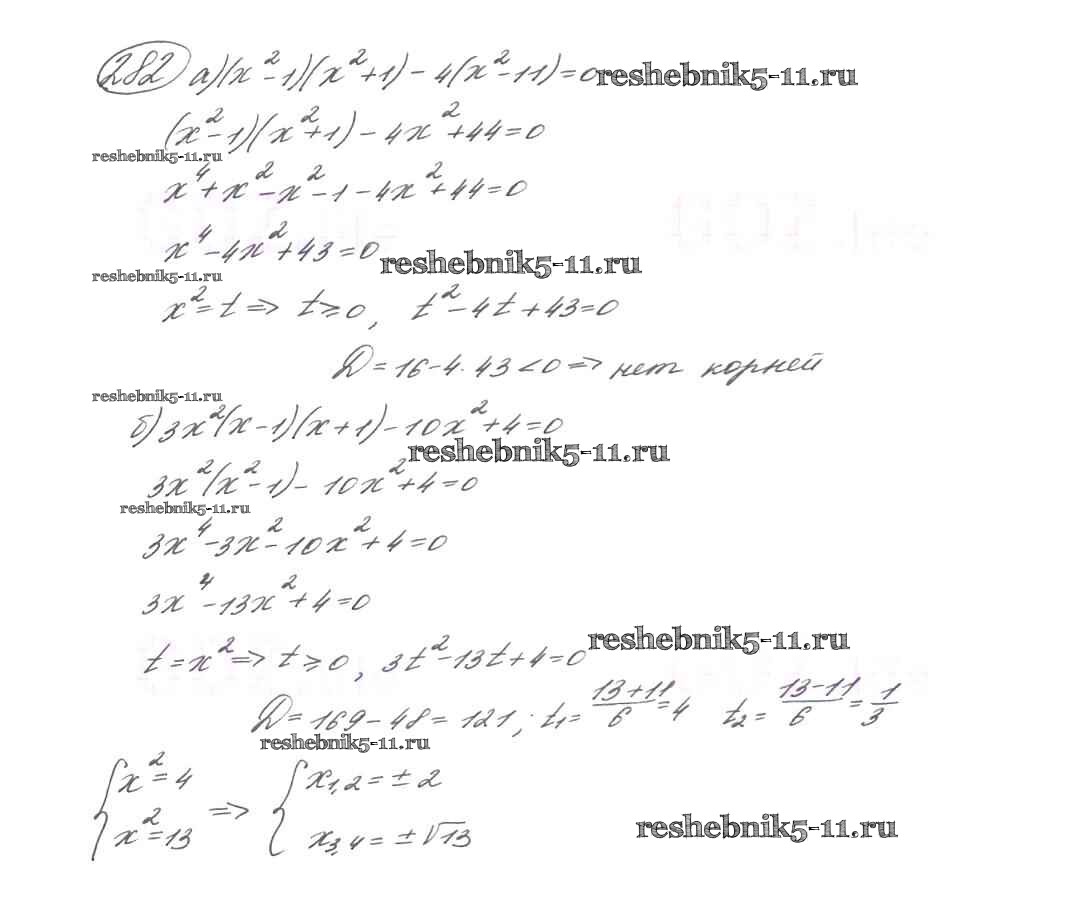 282 а)(x²-1)(x²+1)-4(x²-11)=0 reshebnik5-11.ru
(x²-1)(x²+1)-4x²+44=0
reshebnik5-11.ru
x⁴+x²-x²-1-4x²+44=0
x⁴-4x²+43=0 reshebnik5-11.ru
reshebnik5-11.ru
x²=t=> t≥0, t²-4t+43=0
D=16-4·43<0=> нет корней
reshebnik5-11.ru
б)3x²(x-1)(x+1)-10x²+4=0
reshebnik5-11.ru
3x²(x²-1)-10x²+4=0
reshebnik5-11.ru
3x⁴-3x²-10x²+4=0
3x⁴-13x²+4=0
reshebnik5-11.ru
t=x²=> t≥0, 3t²-13t+4=0
D=169-48=121; t₁=(13+11)/6=4 t₂=(13-11)/6=1/3
reshebnik5-11.ru
{x²=4 => {x₁,₂=±2
{x²=13 {x₃,₄=±√13
reshebnik5-11.ru